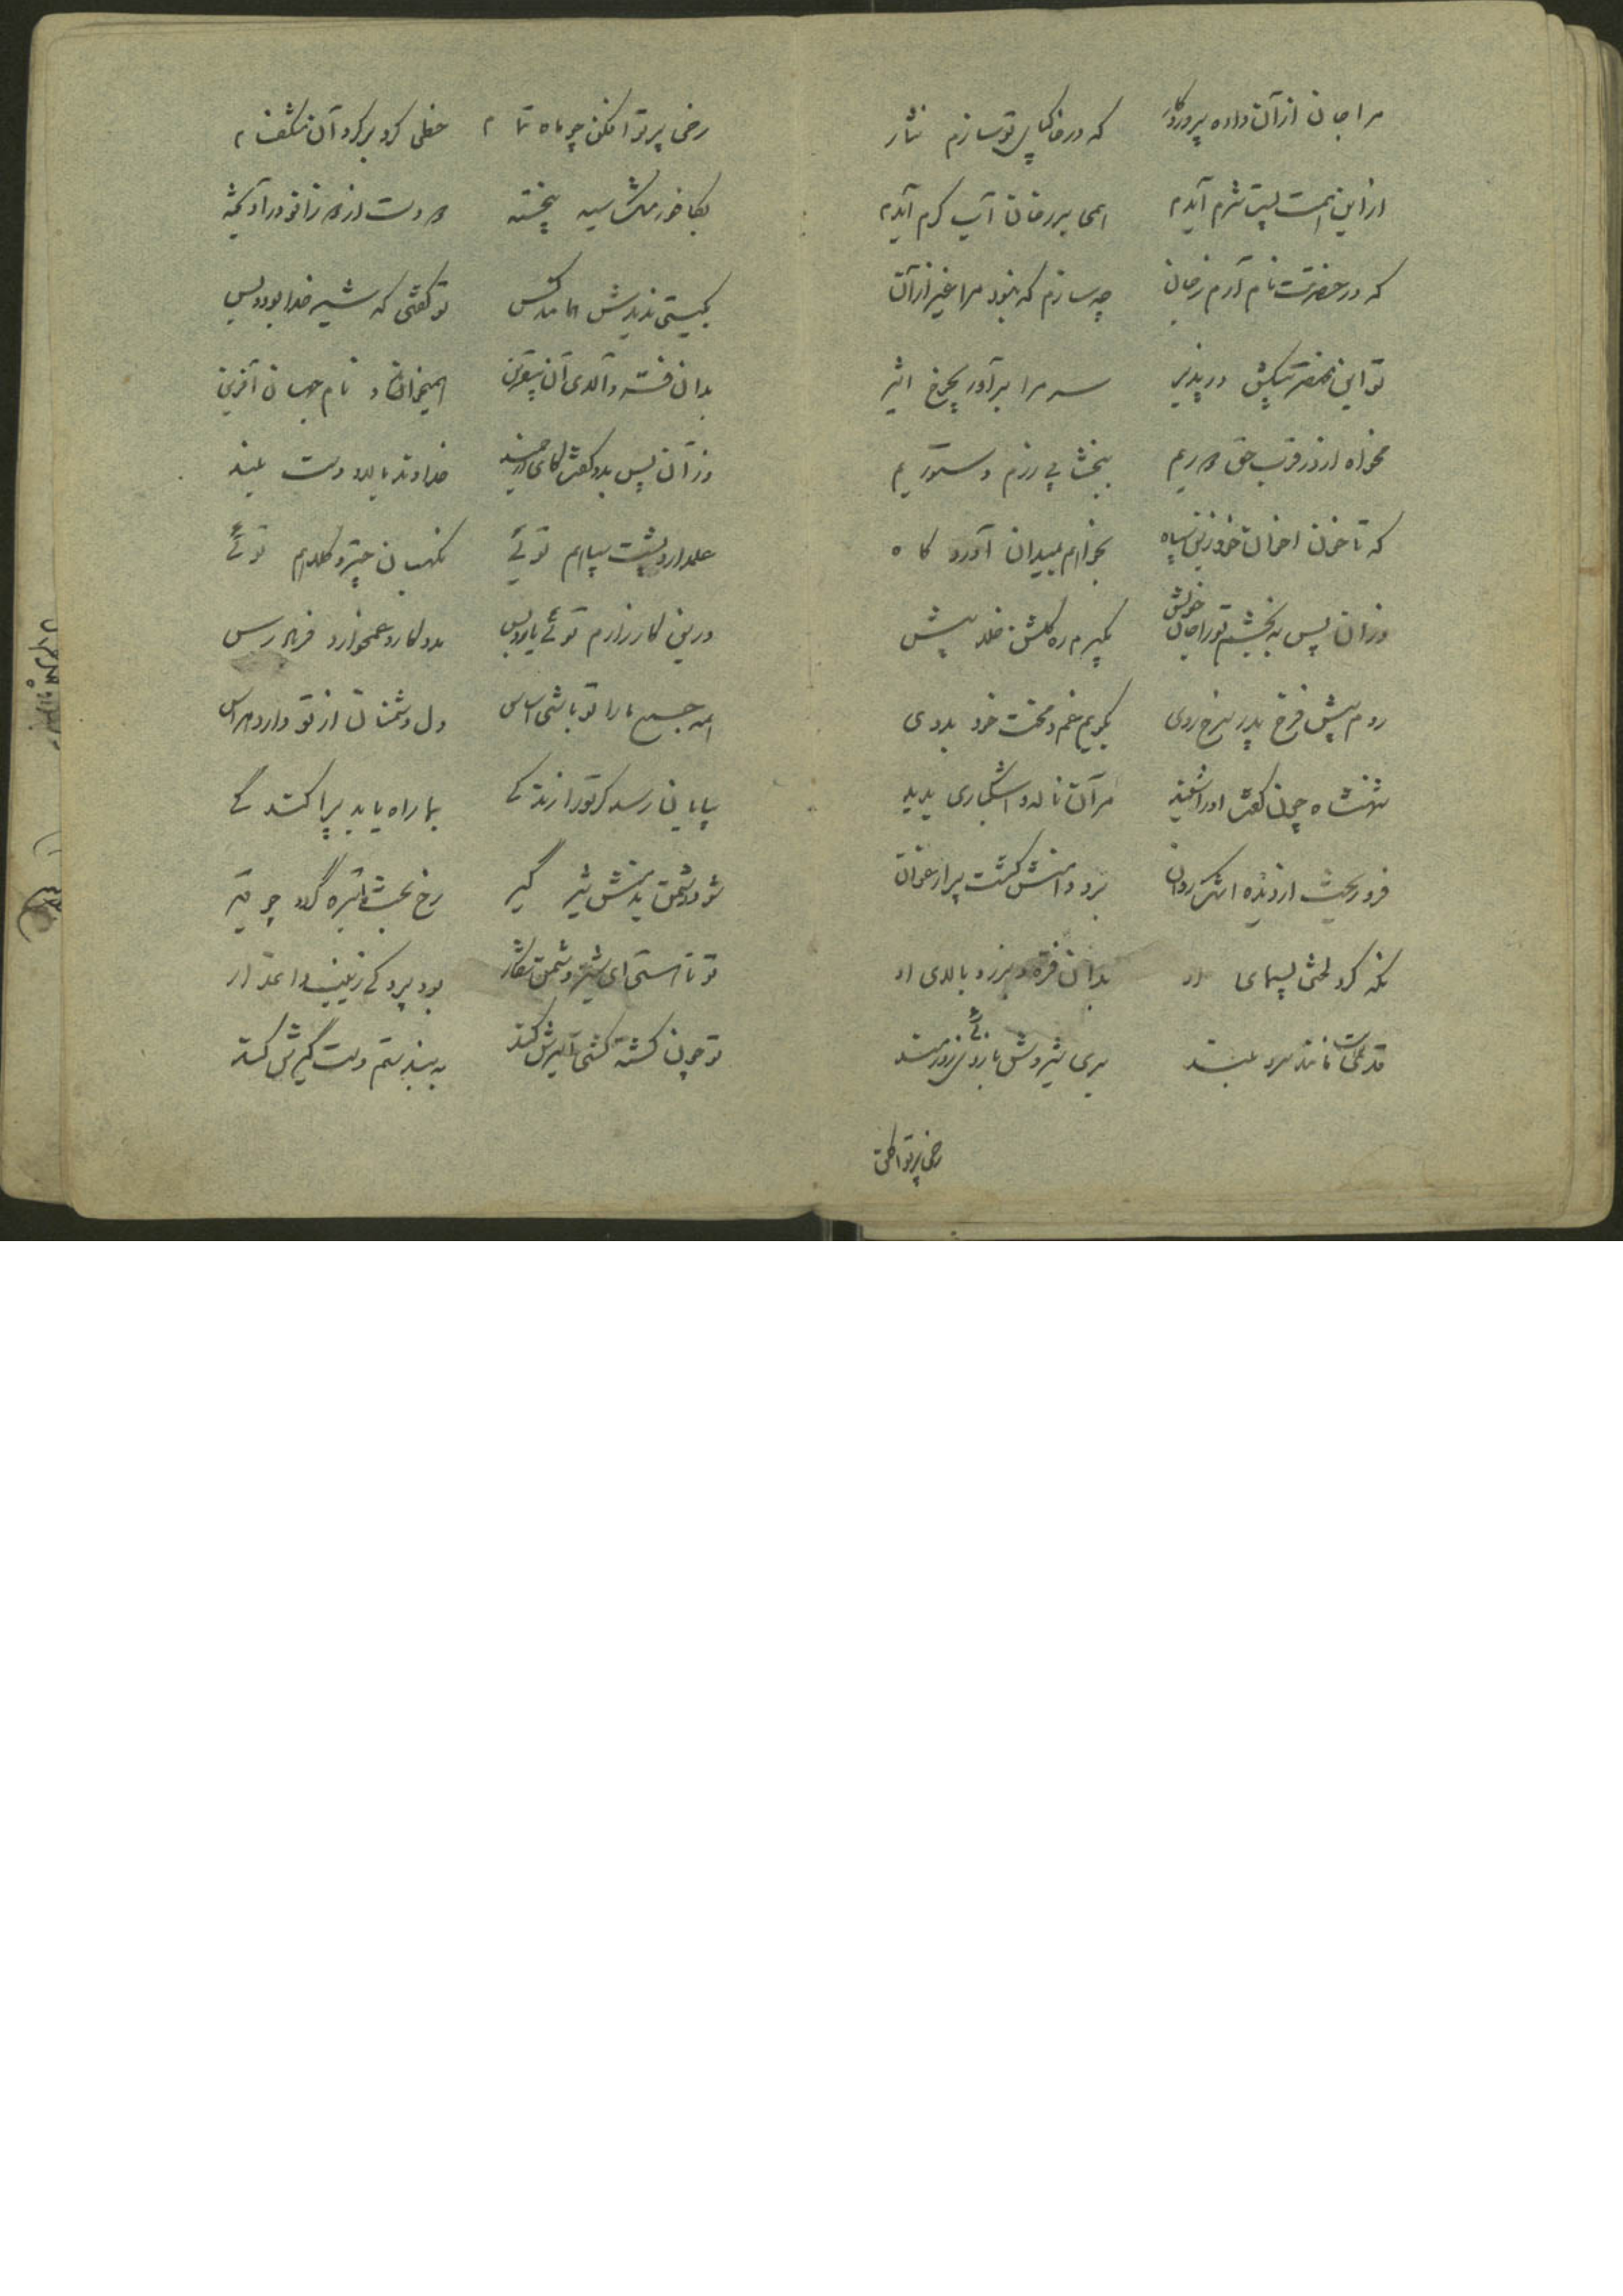 مرا جان از آن داده پروردگار که در خاکپای تو سازم نثار
از این همت پست شرم آیدم همی بر رخان آب گرم آیدم
که در حضرتت نام آرم ز جان چه سازم که نبود مرا غیر از آن
تو این مختصر پیشکش در پذیر سر مرا برآور بچرخ اثیر
مخواه از در قرب حق دوریم ببخشا پی رزم دستوریم
که تا خون اخوان خود زین سپاه بخواهم بمیدان آوردگاه
وز آن پس به بخشم تو را جان خویش بگیرم ره گلشن خلد پیش
روم پیش فرخ پدر سرخ روی بگویم غم و محنت خود بدوی
شهنشاه چون گفت او را شنید مر آن ناله و اشکباری بدید
فرو ریخت از دیده اشک روان برو دامنش گشت پر ارغوان
نگه کرد لختی بسیمای او بدان فره و برز و بالای او
قدی داشت مانند سرو بلند بری شیروش بازوئی زورمند
رخی پرتو افکن
رخی پرتو افکن چو ماه تمام خطی گرد بر گرد آن مشکفام
بکافور مشک سیه بیخته دو دست از دو زانو در آویخته
بگیتی ندیدش همانند کس تو گفتی که شیر خدا بود و بس
بدان قد و بالای آن بیقرین همیخواند نام جهان آفرین
وز آن پس بدو گفت کای ارجمند خداوند بالا و دست بلند
علمدار و پشت سپاهم توئی نگهبان چتر و کلاهم توئی
درین کارزارم توئی یار و بس مددکار و غمخوار و فریادرس
همه جمع ما را تو باشی اساس دل دشمنان از تو دارد هراس
بپایان رسد گر تو را زندگی بما راه یابد پراکندگی
شود دشمن بد منش شیر گیر رخ بخت ما تیره گردد چو قیر
تو تا هستی ای شیر دشمن شکار بود پردگی زینب داغدار
تو چون کشته گشتی اسیرش کنند به بند ستم دستگیرش کنند